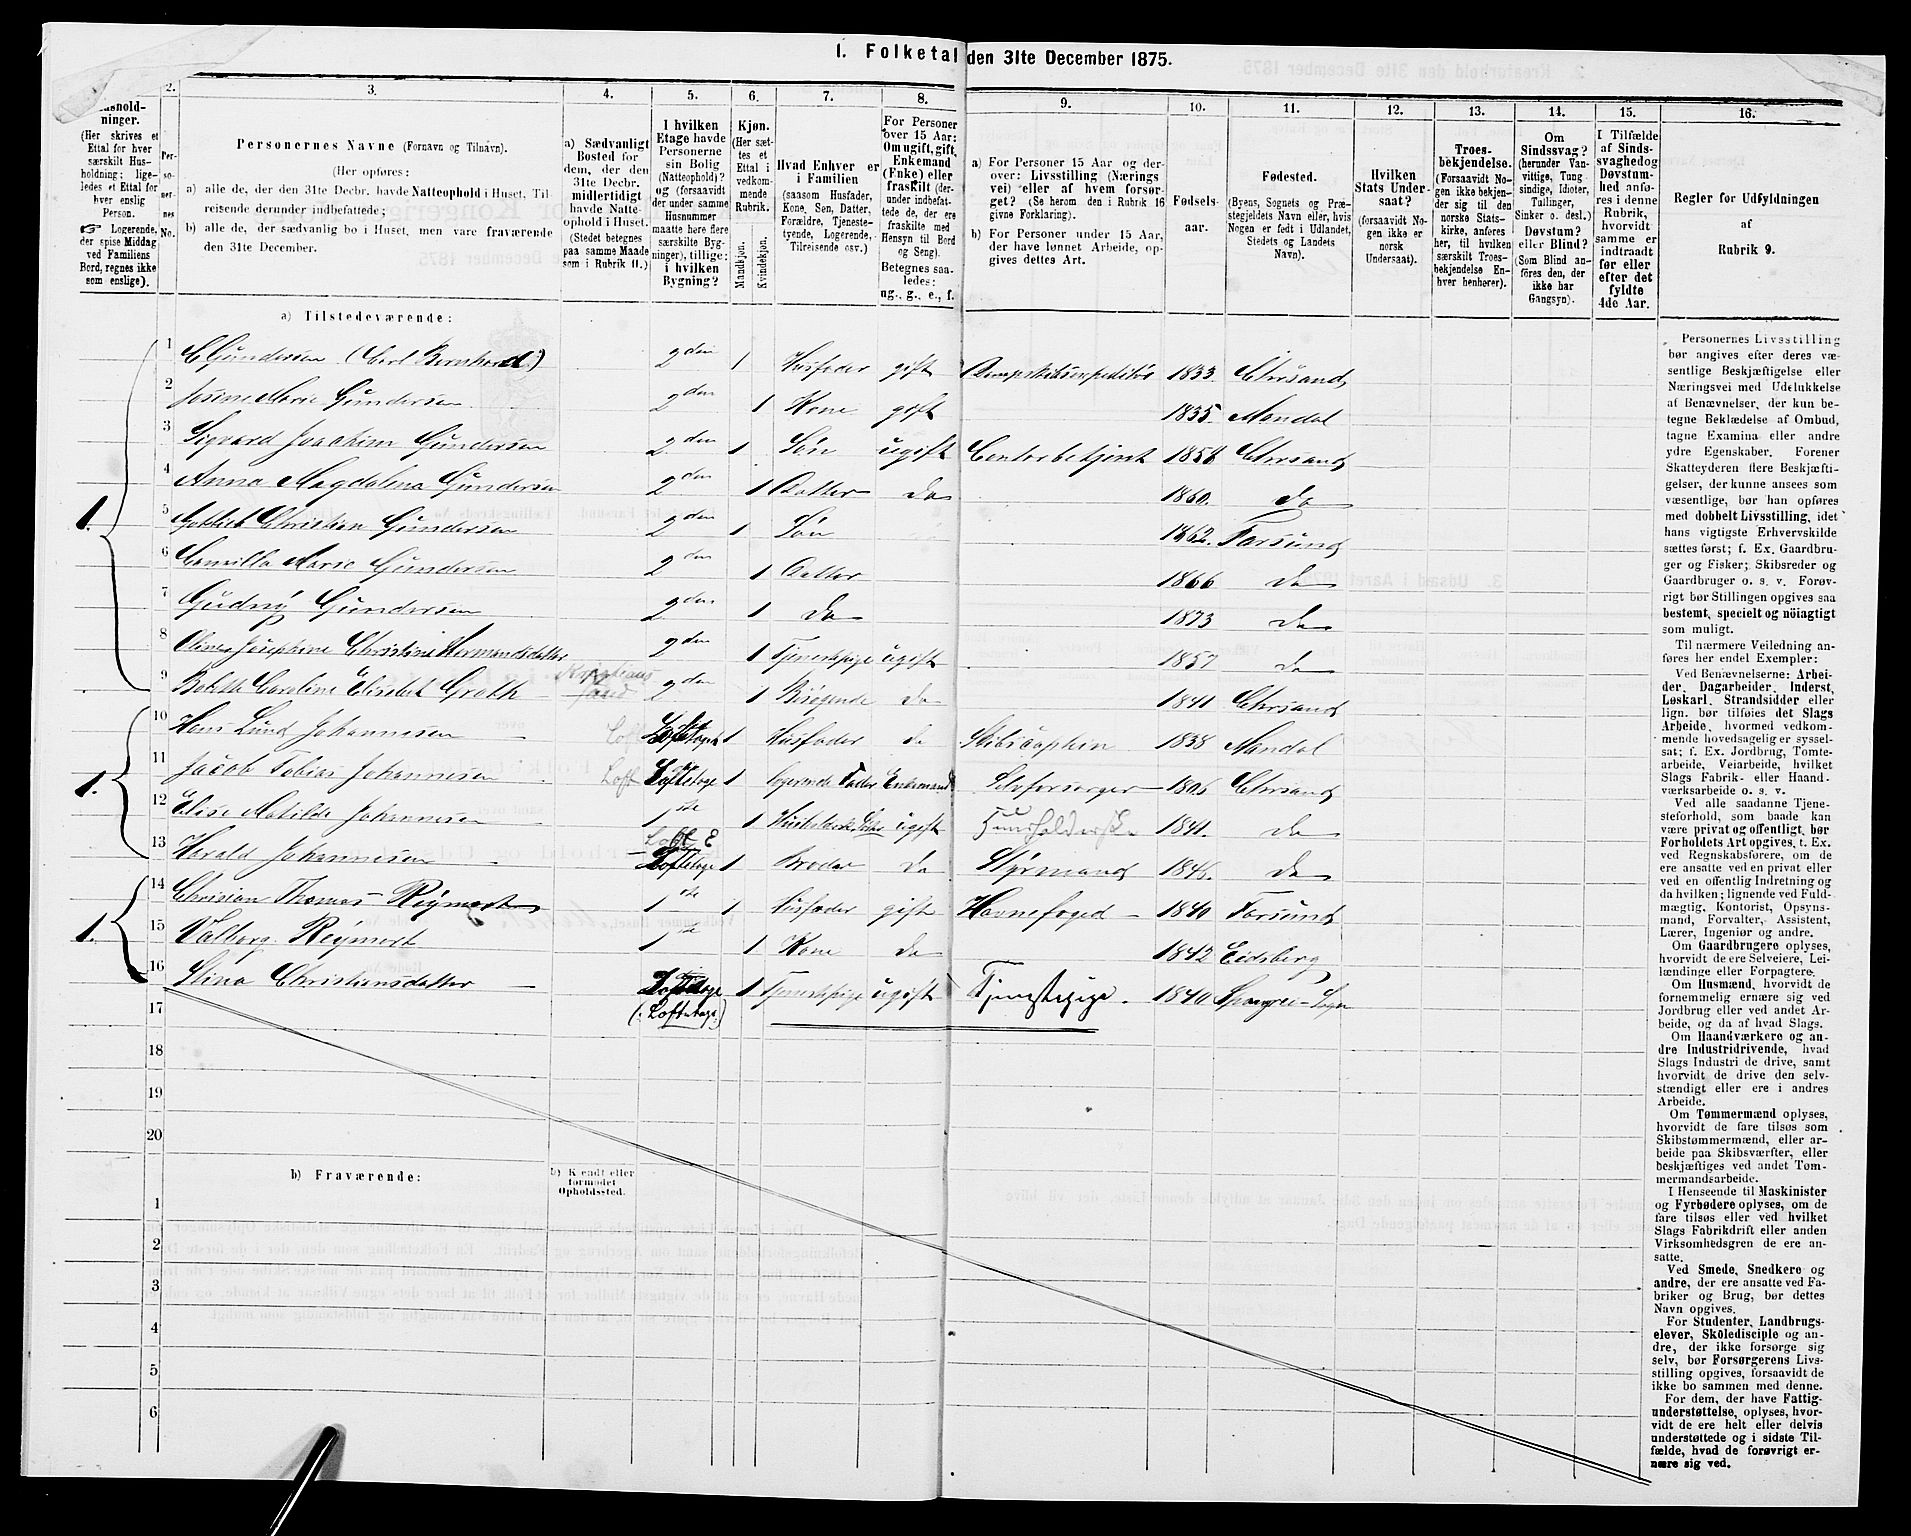 1. Folketal den 31te December 1875.
2. 3. 4. 5. 6. 7. 8. 9. 10. 11. 12. 13. 14. 15. 16.
ninger.
(Her skrives et
Ettal for hver
særskilt Hus-
holdning; lige-
ledes et Ettal for
hver enslig
Person.
☞ Logerende,
der spise Middag
ved Familiens
Bord, regnes ikke
som enslige).
Per-
so-
ner-
nes
No.
Personernes Navne (Fornavn og Tilnavn).
(Her opføres:
a) alle de, der den 31te Decbr. havde Natteophold i Huset, Til-
reisende derunder indbefattede;
b) alle de, der sædvanlig bo i Huset, men vare fraværende
den 31te December.
a) Sædvanligt
Bosted for
dem, der den
31te Decbr.
midlertidigt
havde Natte-
ophold i Huset.
(Stedet betegnes
paa samme Maade
som i Rubrik 11.)
I hvilken
Etage havde
Personerne
sin Bolig
(Natteophold)?
og (forsaavidt
der under samme
Husnummer
maatte høre flere
særskilte Byg-
ninger), tillige:
i hvilken
Bygning?
Kjøn.
(Her sæt-
tes et
Ettal i
vedkom-
mende
Rubrik.
Mandkjøn.
Kvindekjøn.
Hvad Enhver er
i Familien
(saasom Husfader,
Kone, Søn, Datter,
Forældre, Tjeneste-
tyende, Logerende,
Tilreisende osv.)
For Personer
over 15 Aar:
Om ugift, gift,
Enkemand
(Enke) eller
fraskilt (der-
under indbefat-
tede de, der ere
fraskilte med
Hensyn til Bord
og Seng).
Betegnes saa-
ledes:
ug., g., e., f.
a) For Personer 15 Aar og der-
over: Livsstilling (Nærings
vei) eller af hvem forsør-
get? (Se herom den i Rubrik 16
givne Forklaring).
b) For Personer under 15 Aar,
der have lønnet Arbeide, op-
gives dettes Art.
Fødsels-
aar.
Fødested.
(Byens, Sognets og Præ-
stegjeldets Navn eller, hvis
Nogen er født i Udlandet,
Stedets og Landets
Navn).
Hvilken
Stats Under-
saat?
(forsaavidt No-
gen ikke er
norsk
Undersaat).
Troes-
bekjendelse.
(Forsaavidt No-
gen ikke bekjen-
der sig til den
norske Stats-
kirke, anføres
her, til hvilken
særskilt Troes-
bekjendelse En-
hver henhører).
Om
Sindssvag?
(herunder Van-
vittige, Tung
sindige, Idioter,
Tullinger,
Sinker o. desl.)
Døvstum?
eller Blind?
(Som Blind an-
føres den, der
ikke har
Gangsyn).
I Tilfælde
af Sinds-
svaghed og
Døvstum-
hed anfø-
res i denne
Rubrik,
hvorvidt
samme er
indtraadt
før eller
efter det
fyldte
4de Aar.
Regler for Udfyldningen
af
Rubrik 9.
a) Tilstedeværende:
1. 1 C Gundersen (Carl Bernhard) 2den 1 Husfader gift 1833. Chrsand
2 Marie Gundersen 2den 1 Kone gift 1835. Mandal
3 Sigvard Joachim Gundersen 2den 1 Søn ugift Contorbetjent Chrsand
4 Anna Magdalena Gundersen 2den 1 Datter Do 1860. do
5 Christian Gundersen 2den 1 Søn 1862. Farsund
6 Camilla Marie Gundersen 2den 1 Datter 1866 do
7 Gudny Gundersen 2den 1 Do 1873 do
8 Josephine Christine Hermandsdatter 2den 1 Tjenestepige ugift 1857 do
9 Caroline Elisabet Groth Kristianssand 2den 1 Besøgende Do 1841 Chrsand
1. 10 Hans Lund Johannesen Loft Loftetage 1 Husfader do 1838 Mandal
11 Jacob Tobias Johannesen Loft Loftetage 1 logerende Fader Enkemand Selvforsørger 1806 Chrsand
12 Elise Matilde Johannesen 1ste 1 ugift Huusholderske 1841. do
13 Harald Johannesen Loft E Loftetage 1 Broder Do Styrmand do
1. 14 Christian Thomas Reymert 1ste 1 Husfader gift Havnefoged 1840 Farsund
15 Valborg Reymert 1ste 1 Kone Do 1842 Eidsberg
16 Stina Christiansdatter Loftetage 1 Tjenestepige ugift Tjenestepige. 1840
17 (: Loftetage)
18
19
20
b) Fraværende:
b) Kjendt eller
formodet
Opholdssted.
1
2
3
4
5
6
Personernes Livsstilling
bør angives efter deres væ-
sentlige Beskjæftigelse eller
Næringsvei med Udelukkelse
af Benævnelser, der kun be-
tegne Beklædelse af Ombud,
tagne Examina eller andre
ydre Egenskaber. Forener
Skatteyderen flere Beskjæfti-
gelser, der kunne ansees som
væsentlige, bør han opføres
med dobbelt Livsstilling, idet
hans vigtigste Erhvervskilde
sættes først; f. Ex. Gaardbru-
ger og Fisker; Skibsreder og
Gaardbruger o. s. v. Forøv-
rigt bør Stillingen opgives saa
bestemt, specielt og nøiagtigt
som muligt.
Til nærmere Veiledning an-
føres her endel Exempler:
Ved Benævnelserne: Arbei-
der, Dagarbeider, Inderst,
Løskarl, Strandsidder eller
lign. bør tilføies det Slags
Arbeide, hvormed vedkom-
mende hovedsagelig er syssel-
sat; f. Ex. Jordbrug, Tomte-
arbeide, Veiarbeide, hvilket
Slags Fabrik- eller Haand-
værksarbeide o. s. v.
Ved alle saadanne Tjene-
steforhold, som baade kan
være privat og offentlig, bør
Forholdets Art opgives, t. Ex.
ved Regnskabsførere, om de
ere ansatte ved en privat eller
ved en offentlig Indretning og
da hvilken; lignende ved Fuld-
mægtig, Kontorist, Opsyns-
mand, Forvalter, Assistent,
Lærer, Ingeniør og andre.
Om Gaardbrugere oplyses,
hvorvidt de ere Selveiere, Lei-
lændinge eller Forpagtere.
Om Husmænd, hvorvidt de
fornemmelig ernære sig ved
Jordbrug eller ved andet Ar-
beide, og da af hvad Slags.
Om Haandværkere og an-
dre Industridrivende, hvad
Slags Industri de drive, samt
hvorvidt de drive den selv-
stændigt eller ere i andres
Arbeide.
Om Tømmermænd oplyses,
hvorvidt de fare tilsøs som
Skibstømmermænd, eller ar-
beide paa Skibsværfter, eller
beskjæftiges ved andet Tøm-
mermandsarbeide.
I Henseende til Maskinister
og Fyrbødere oplyses, om de
fare tilsøs eller ved hvilket
Slags Fabrikdrift eller anden
Virksomhedsgren de ere an-
satte.
Ved Smede, Snedkere og
andre, der ere ansatte ved Fa-
briker og Brug, bør dettes
Navn opgives.
For Studenter, Landbrugs-
elever, Skoledisciple og an-
dre, der ikke forsørge sig
selv, bør Forsørgerens Livs-
stilling opgives, forsaavidt de
ikke bo sammen med denne.
For dem, der have Fattig-
understøttelse, oplyses, hvor-
vidt de ere helt eller delvis
understøttede og i sidste Til-
fælde, hvad de forøvrigt er-
nære sig ved.